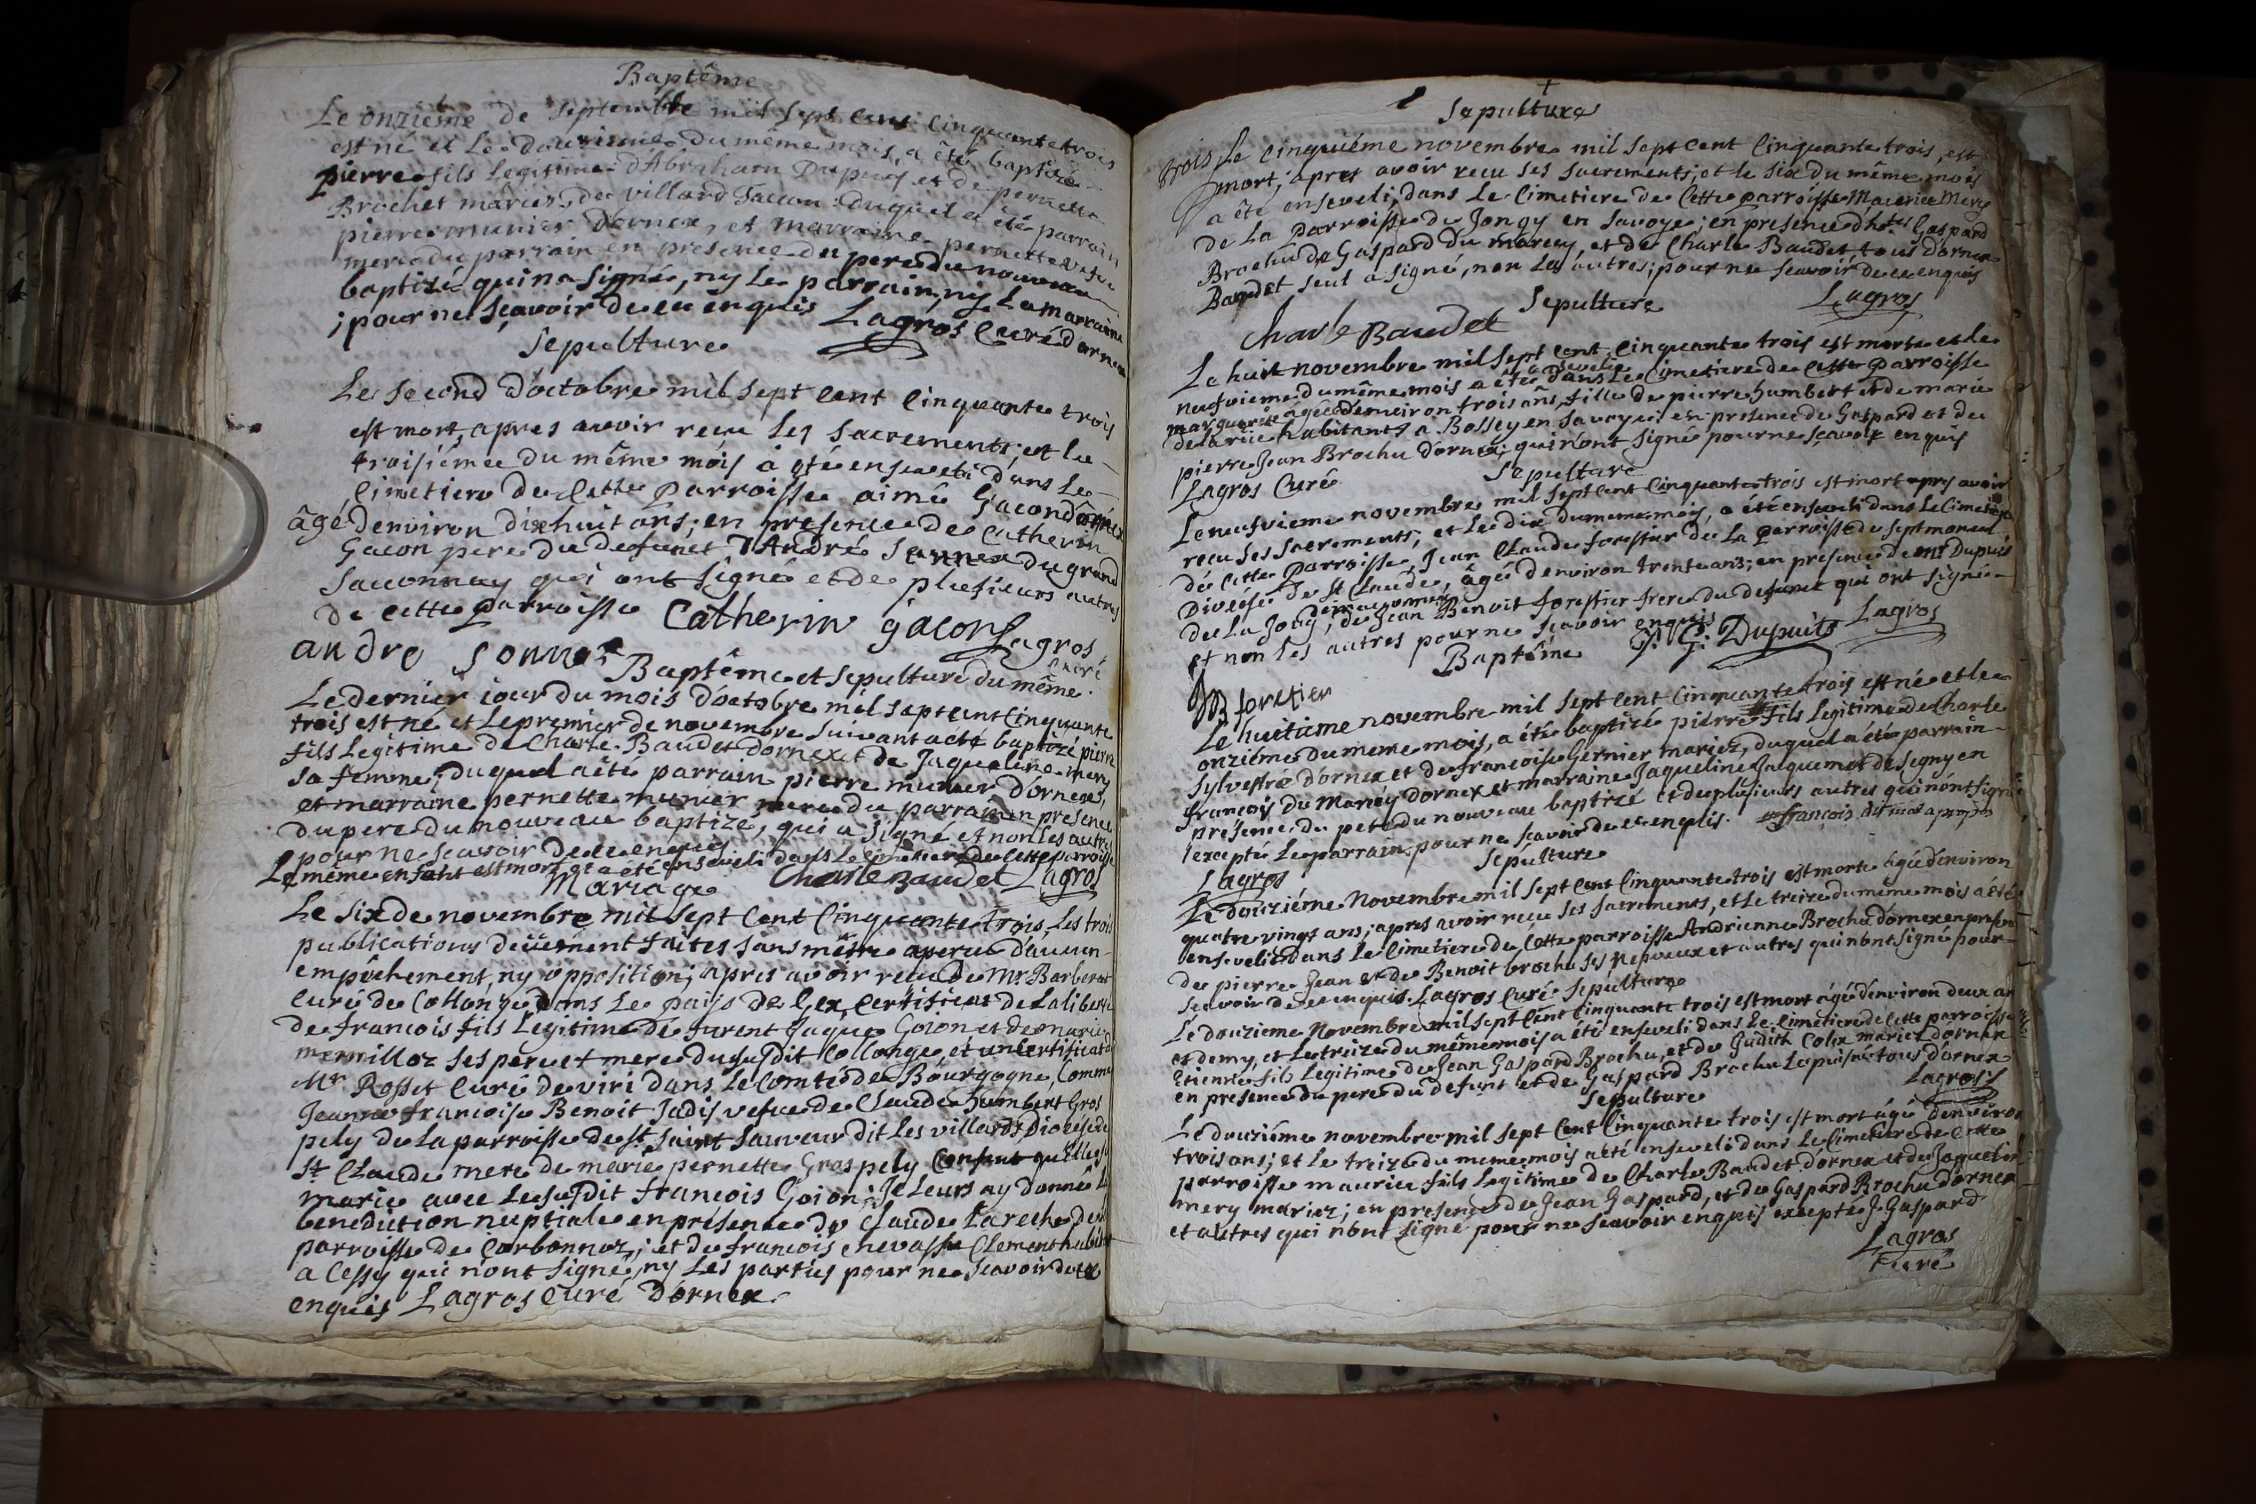 Baptême
Le onziême de septembre mil sept cent cinquante trois
est né et le douzieme du même mois, a été baptizé
pierre fils legitime d'Abraham Dupuis et de pernette
Brochet mariez, de villard Tacon: duquel a été parrain
pierre munier d'ornex, et marraine pernette
mere du parrain en presence du pere du nouveau
baptizé qui na signé, ny le parrain, ny la marraine
; pour ne sçavoir de ce enquis Lagros Curé dornex
Sepulture
Le second d'octobre mil sept cent cinquante trois
est mort, apres avoir recu les sacrements; et le
troisiéme du même mois à été enseveli dans le
Cimetiere de Cette parroisse aimé Gacon d'ornex
âgé denviron dixhuit ans; en presence de Catherin
Gacon pere du defunct, d'André Sonnex du grand
Saconnay qui ont signé et de plusieurs autres
de cette parroisse Catherin gacon Lagros
andre sonnex curé
Baptême et sepulture du même
Le dernier jour du mois d'octobre mil sept cent cinquante
trois est né et le premier de novembre suivant a été baptizé pierre
fils legitime de Charle Baudet dornex et de Jaqueline mery
sa femme; duquel a été parrain pierre munier d'ornex,
et marraine pernette munier mere du parrain en presence
du pere du nouveau baptizé, qui a signé et non les autres
pour ne scavoir de ce enquis
Le même enfant est mort et a été enseveli dans le cimetiere de cette parroisse
Mariage Charle Baudet Lagros
Le six de novembre mil sept cent cinquante trois, les trois
publications deüement faites sans mêtre aperçu d'aucun
empêchement, ny opposition; apres avoir reçu de Mr. Barberat
curé de Collonge dans le païs de Gex, certificat de la liberté
de francois fils legitime de furent Jaques Goion et de marie
mermilloz ses pere et mere du susdit Collonge, et un certificat de
Mr Rosset curé de viri dans le Comté de Bourgogne, comme
Jeanne francoise Benoit Jadis vefue de Claude humbert Gros
pely de la parroisse de st saint Sauveur dit les villards Diocése de
St Claude mere de marie pernette Grospely consent quelle se
marie avec le susdit francois Goion; Je leurs ay donné la
benediction nuptiale en présence de Claude Lareche de la
parroisse de Carbonnoz; et de francois chevasse Clement habitant
a Cessy qui n'ont signé, ny les parties pour ne scavoir de ce
enquis Lagros curé d'ornex
Sepulture
Le cinquiéme novembre mil sept cent cinquante trois, est
mort; apres avoir recu ses sacrements; et le six du même mois
a été enseveli, dans le cimetiere de cette parroisse Maurice Mery
de la parroisse de Jongy en Savoye; en presence d'h.tes Gaspard
Brochu de Gaspard du marecy, et de Charle Baudet, tous d'ornex
Baudet seul a signé, non les autres; pour ne scavoir de ce enquis
Charle Baudet Sepulture Lagros
Le huit novembre mil sept cent cinquante trois est morte et le
neufvieme du même mois a été ensevelie dans le cimetiere de cette parroisse
marguerite âgée denviron trois ans, fille de pierre humbert et de marie
delarüe habitants a Bossey en Savoye: en presence de Gaspard et de
pierre Jean Brochu d'ornex, qui n'ont signé pour ne sçavoir enquis
Lagros Curé Sepulture
Le neufvieme novembre mil sept cent cinquante trois est mort apres avoir
recu ses sacrements, et le dix du meme mois, a été enseveli dans le cimetiere
de cette parroisse, Jean Claude forestier de la parroisse de septmoncel
Diocése de St Claude, âgé d'environ trente ans; en presence de mr Dupuis
de La Joug, de Jean Benoit forestier frere du defunct qui ont signé
et non les autres pour ne scavoir enquis J. G: Dupuits Lagros
JB foretier Baptême
Le huitième novembre mil sept cent cinquante trois est né et le
onziéme du meme mois, a été baptizé pierre fils legitime de Charle
Sylvestre d'ornex et de francoise Gernier mariez, duquel a été parrain
francois du Marecy dornex et marraine Jaqueline Jalquemet de Segny en
presence du pere du nouveau baptizé et de plusieurs autres qui n'ont signé
excepté le parrain, pour ne scavoir de ce enquis.
Lagros Sepulture
Le douziéme novembre mil sept cent cinquante trois est morte âgée d'environ
quatre vingt ans; apres avoir reçu ses sacrements, et le treize du même mois a été
ensevelie dans le Cimetiere de cette parroisse Andrienne Brochu d'ornex en presence
de pierre Jean et de Benoit brochu ses neveux et autres qui n'ont signé pour
scavoir de ce enquis. Lagros Curé Sepulture
Le douzieme novembre mil sept cent cinquante trois est mort âgé d'environ deux ans
et demy, et le treize du même mois a été enseveli dans le cimetiere de cette parroisse
Etienne fils legitime de Jean Gaspard Brochu, et de Judith Colix mariez d'ornex
en presence du pere du defunt et de Gaspard Brochu Lepuisné tous d'ornex
Sepulture Lagros
Le douziéme novembre mil sept cent cinquante trois est mort âgé d'environ
trois ans; et le treize du meme mois a été enseveli dans le cimetiere de cette
parroisse maurice fils legitime de Charle Baudet d'ornex et de Jaqueline
mery mariez; en presence de Jean Gaspard, et de Gaspard Brochu d'ornex
et autres qui n'ont signé pour ne scavoir enquis excepté J. Gaspard
Lagros
Curé